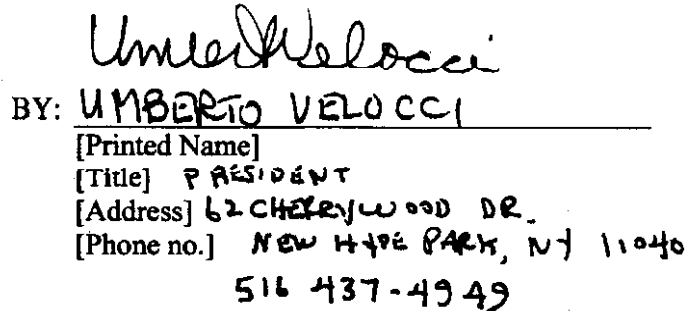 Umberto Velocci
BY: UMBERTO VELOCCI
[Printed Name]
[Title] PRESIDENT
[Address] 62 CHERRYWOOD DR.
[Phone no.] NEW HYDE PARK, NY 11040
516 437-4949